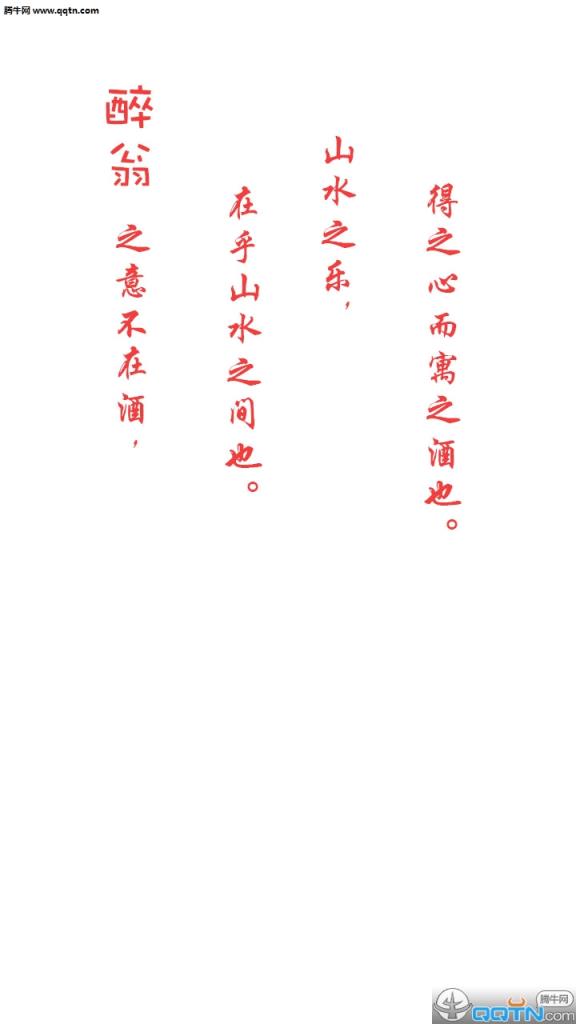 腾牛网 www.qqtn.com
醉翁之意不在酒，
在乎山水之间也。
山水之乐，
得之心而寓之酒也。
腾牛网
QQTN.com